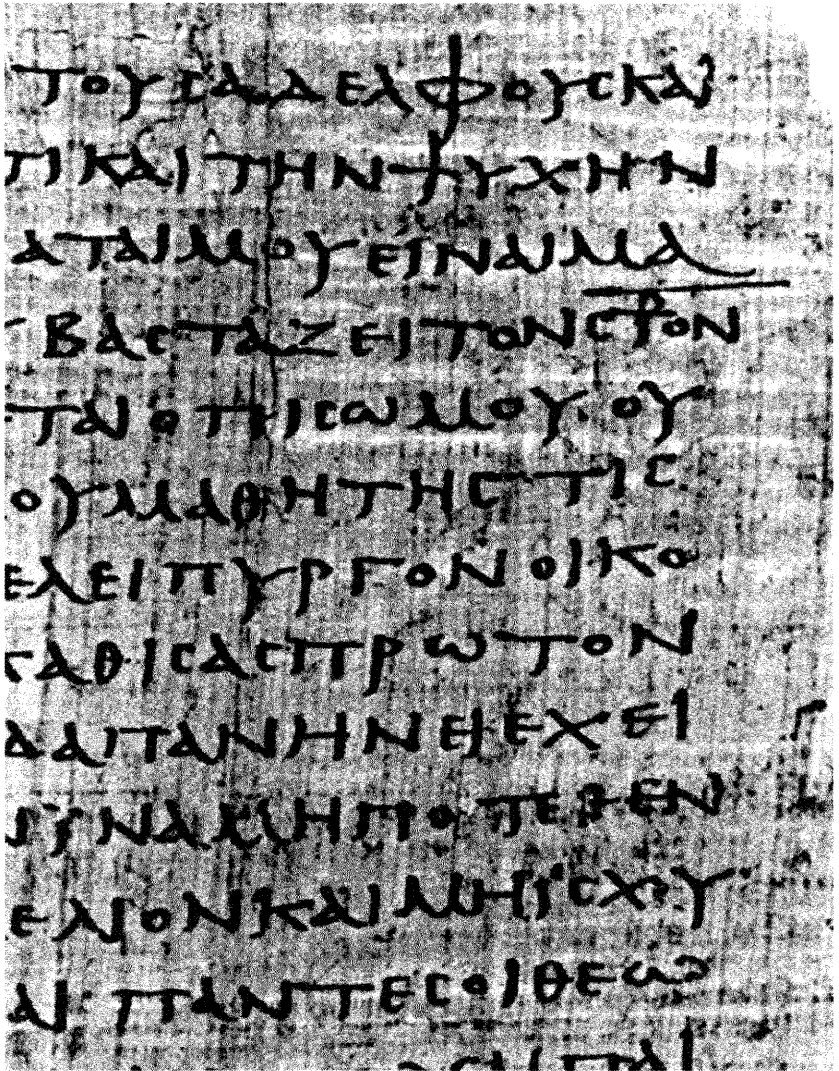 ΤΟΥϹΑΔΕΛΦΟΥϹΚΑΙ
ΤΙΚΑΙΤΗΝΨΥΧΗΝ
ΑΤΑΙΜΟΥΕΙΝΑΙΜΑ
ΒΑϹΤΑΖΕΙΤΟΝϹΤΡΟΝ
ΤΑΙΟΠΙϹΩΜΟΥΟΥ
ΟΥΜΑΘΗΤΗϹΤΙϹ
ΕΛΕΙΠΥΡΓΟΝΟΙΚΟ
ΚΑΘΙϹΑϹΠΡΩΤΟΝ
ΔΑΠΑΝΗΝΕΙΕΧΕΙ
ΙΝΑΜΗΠΟΤΕΘΕΝ
ΕΛΙΟΝΚΑΙΜΗΙϹΧΥ
ΑΙΠΑΝΤΕϹΟΙΘΕΩ